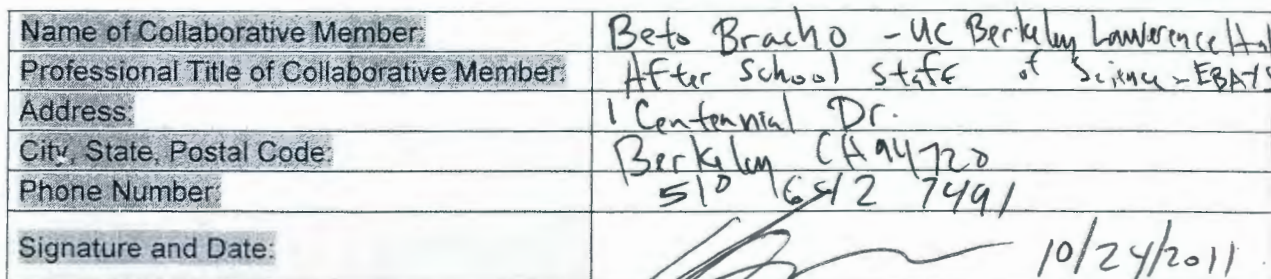 Name of Collaborative Member: Beto Bracho - UC Berkeley Lawrence Hal
Professional Title of Collaborative Member: After School staff of Science - EBAYS
Address: 1 Centennial Dr.
City, State, Postal Code: Berkeley CA 94720
Phone Number: 510 642 7491
Signature and Date: 10/24/2011